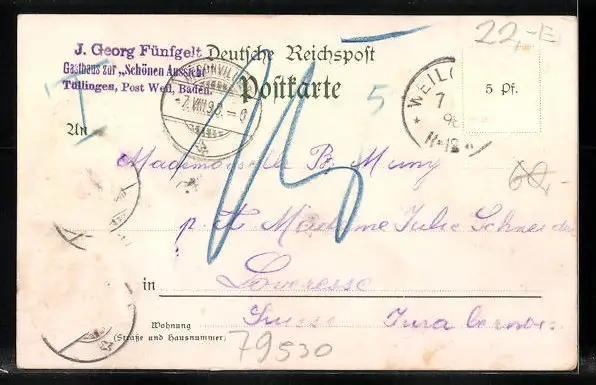 22,-E
J. Georg Fünfgelt
Gasthaus zur „Schönen Aussicht"
Tüllingen, Post Weil, Baden.
Deutsche Reichspost
Postkarte
5 Pf.
T
15
5
-7.VIII.98.-6
* WEIL
7
98
11-12
60,-
An Mademoiselle B. Muny
p. A Madame Julie Schneider
in Loveresse
Suisse Jura bernois
Wohnung
(Straße und Hausnummer)
79530